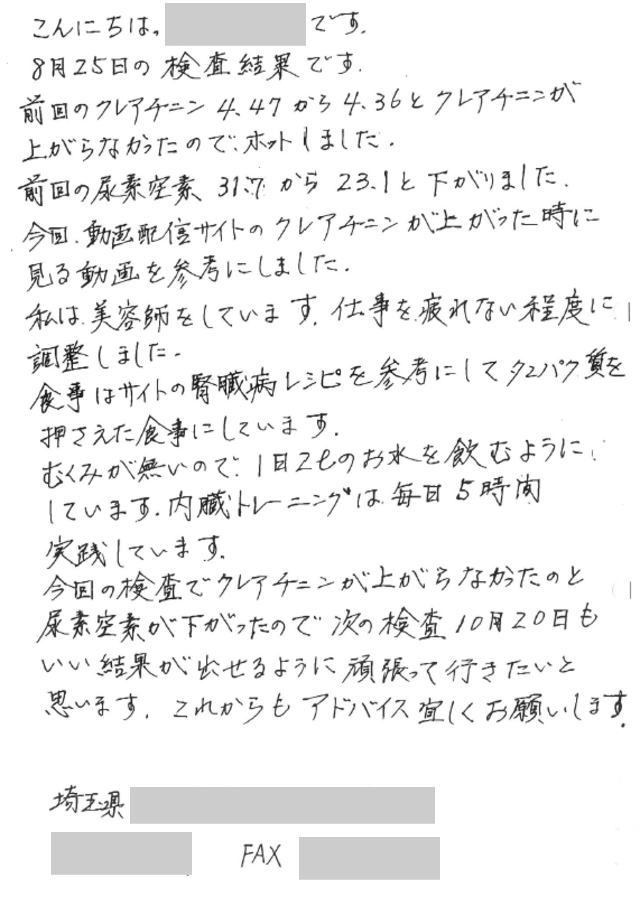 こんにちは。 です.
8月25日の検査結果です.
前回のクレアチニン 4.47から4.36とクレアチニンが
上がらなかったので、ホットしました.
前回の尿素窒素 31.7から 23.1と下がりました.
今回、動画配信サイトのクレアチニンが上がった時に
見る動画を参考にしました.
私は美容師をしています. 仕事を疲れない程度に
調整しました.
食事はサイトの腎臓病レシピを参考にしてタンパク質を
押さえた食事にしています.
むくみが無いので、1日2ℓのお水を飲むように
しています. 内臓トレーニングは毎日5時間
実践しています.
今回の検査でクレアチニンが上がらなかったのと
尿素窒素が下がったので次の検査10月20日も
いい結果が出せるように頑張って行きたいと
思います. これからもアドバイス宜しくお願いします.
埼玉県
FAX